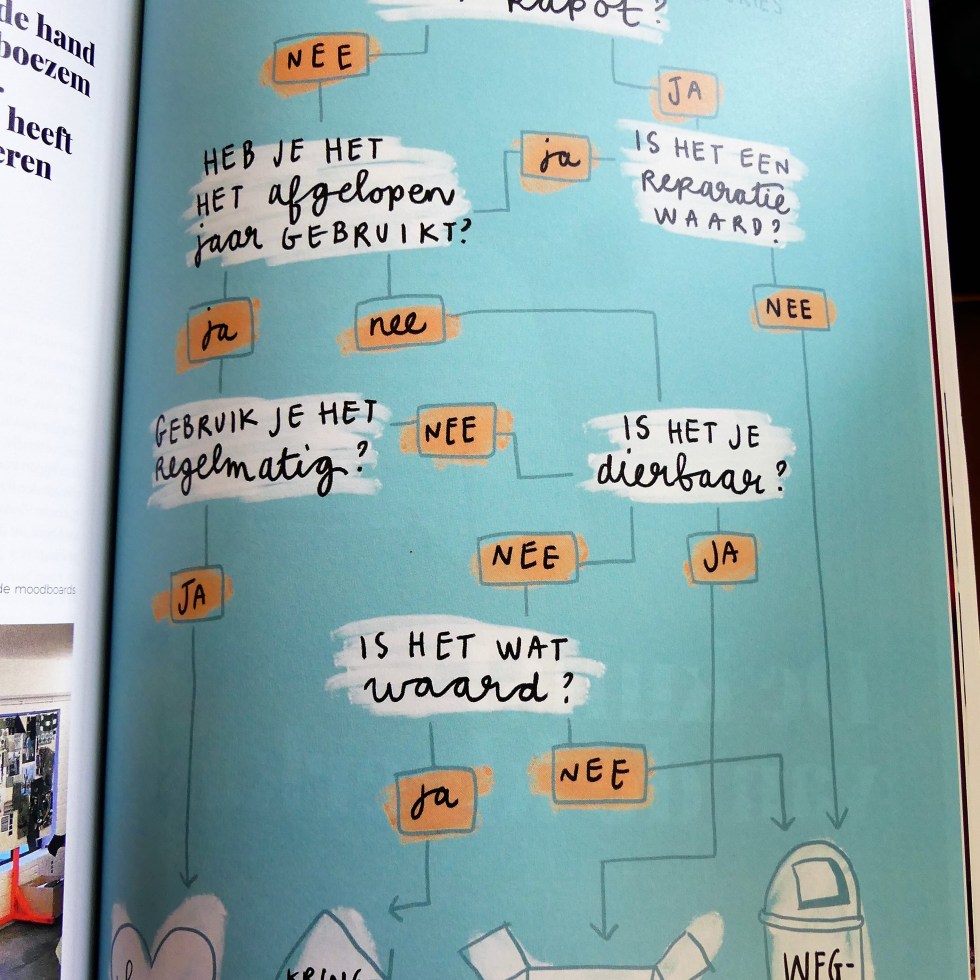 de hand
boezem
heeft
eren
de moodboards
kapot?
NEE
JA
HEB JE HET
HET afgelopen
jaar GEBRUIKT?
ja
IS HET EEN
REPARATIE
WAARD?
ja
nee
NEE
GEBRUIK JE HET
REGELMATIG?
NEE
IS HET JE
dierbaar?
NEE
JA
JA
IS HET WAT
waard?
ja
NEE
KRING-
WEG-